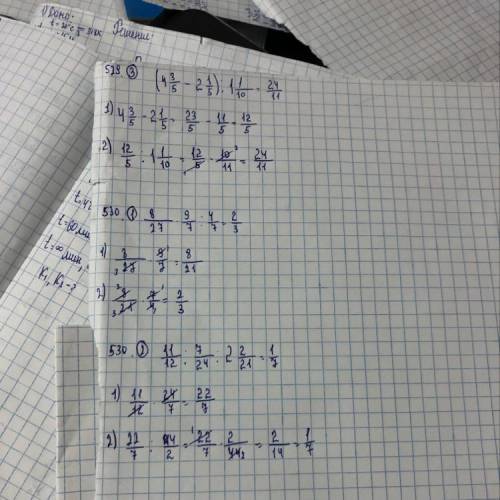 Дано:
Решение:
529 ③ (4 3/5 - 2 1/5) : 1 1/10 = 24/11
1) 4 3/5 - 2 1/5 = 23/5 - 11/5 = 12/5
2) 12/5 : 1 1/10 = 12/5 · 10/11 = 24/11
530. ① 8/27 · 9/7 : 4/7 = 2/3
1) 8/27 · 9/7 = 8/21
2) 8/21 · 7/4 = 2/3
530 ② 11/12 : 7/24 : 2 2/21 = 1/7
1) 11/12 · 24/7 = 22/7
2) 22/7 : 44/2 = 22/7 · 2/44 = 2/14 = 1/7